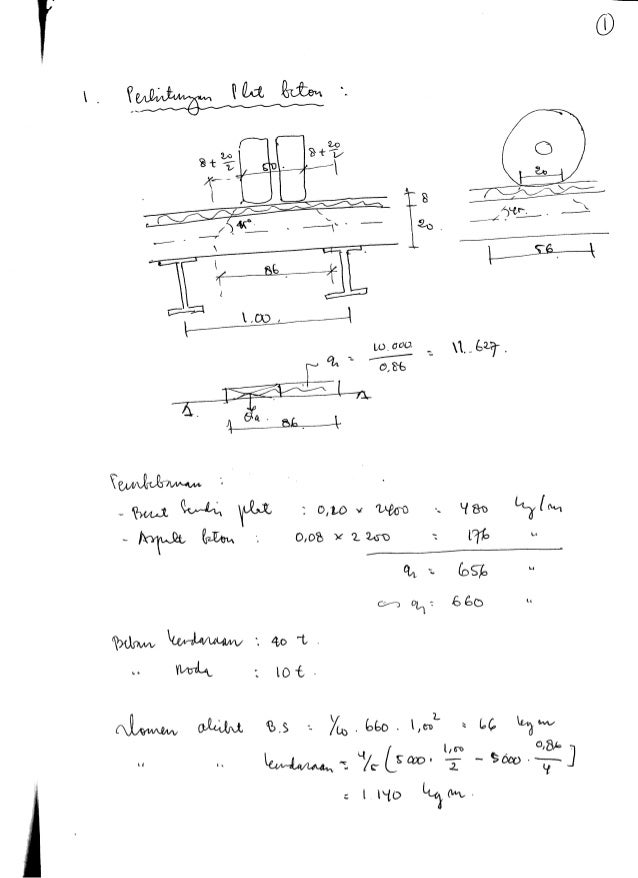 1
1. Perhitungan Plat beton :
8 + 20/2 50 8 + 20/2
20
45°
8
20
45°
56
86
1.00
q = 10.000/0,86 = 11.627.
86
Pembebanan :
- Berat Sendiri plat : 0,20 x 2400 = 480 kg/m
- Aspal beton : 0,08 x 2200 = 176 "
q = 656 "
∞ q = 660 "
Beban kendaraan : 40 t.
" Roda : 10 t.
Momen akibat B.S = 1/10 . 660 . 1,00² = 66 kgm
" " kendaraan = 4/5 ( 5000 . 1,00/2 - 5000 . 0,86/4 ]
= 1.140 kgm.